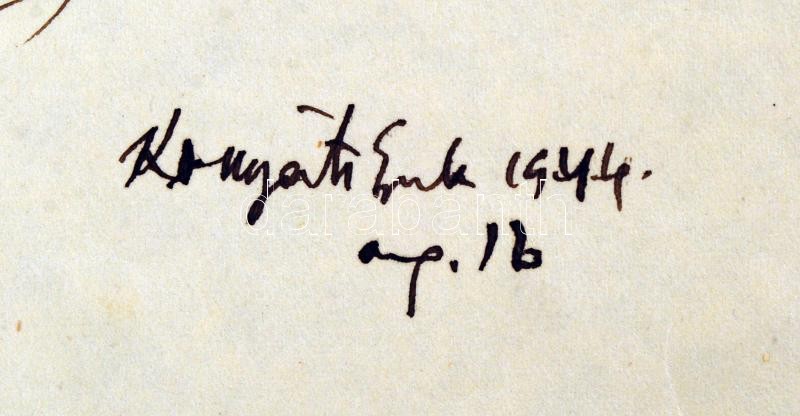 Konyáti Erik 1944.
aug. 16
darabanth